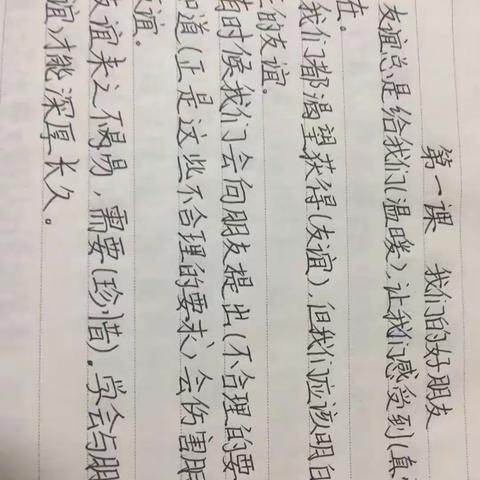 第一课 我们的好朋友
友谊总是给我们(温暖),让我们感受到(真
在。
我们都渴望获得(友谊),但我们应该明白
的友谊。
有时候我们会向朋友提出(不合理的要
知道(正是这些不合理的要求)会伤害朋
谊。
友谊来之不易,需要(珍惜)。学会与朋
谊)才能深厚长久。